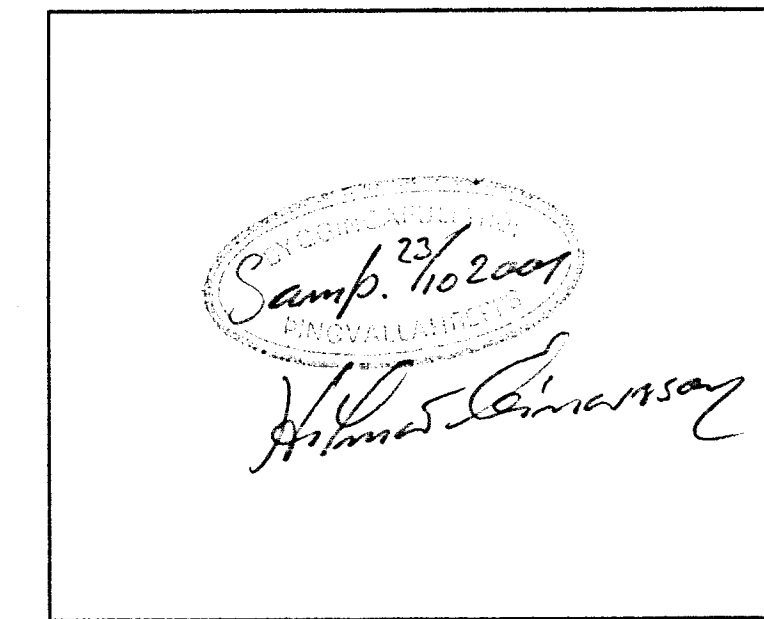 BYGGINGAFULLTRÚI
Samþ. 23/10 2001
ÞINGVALLAHREPPS
Hilmar Einarsson